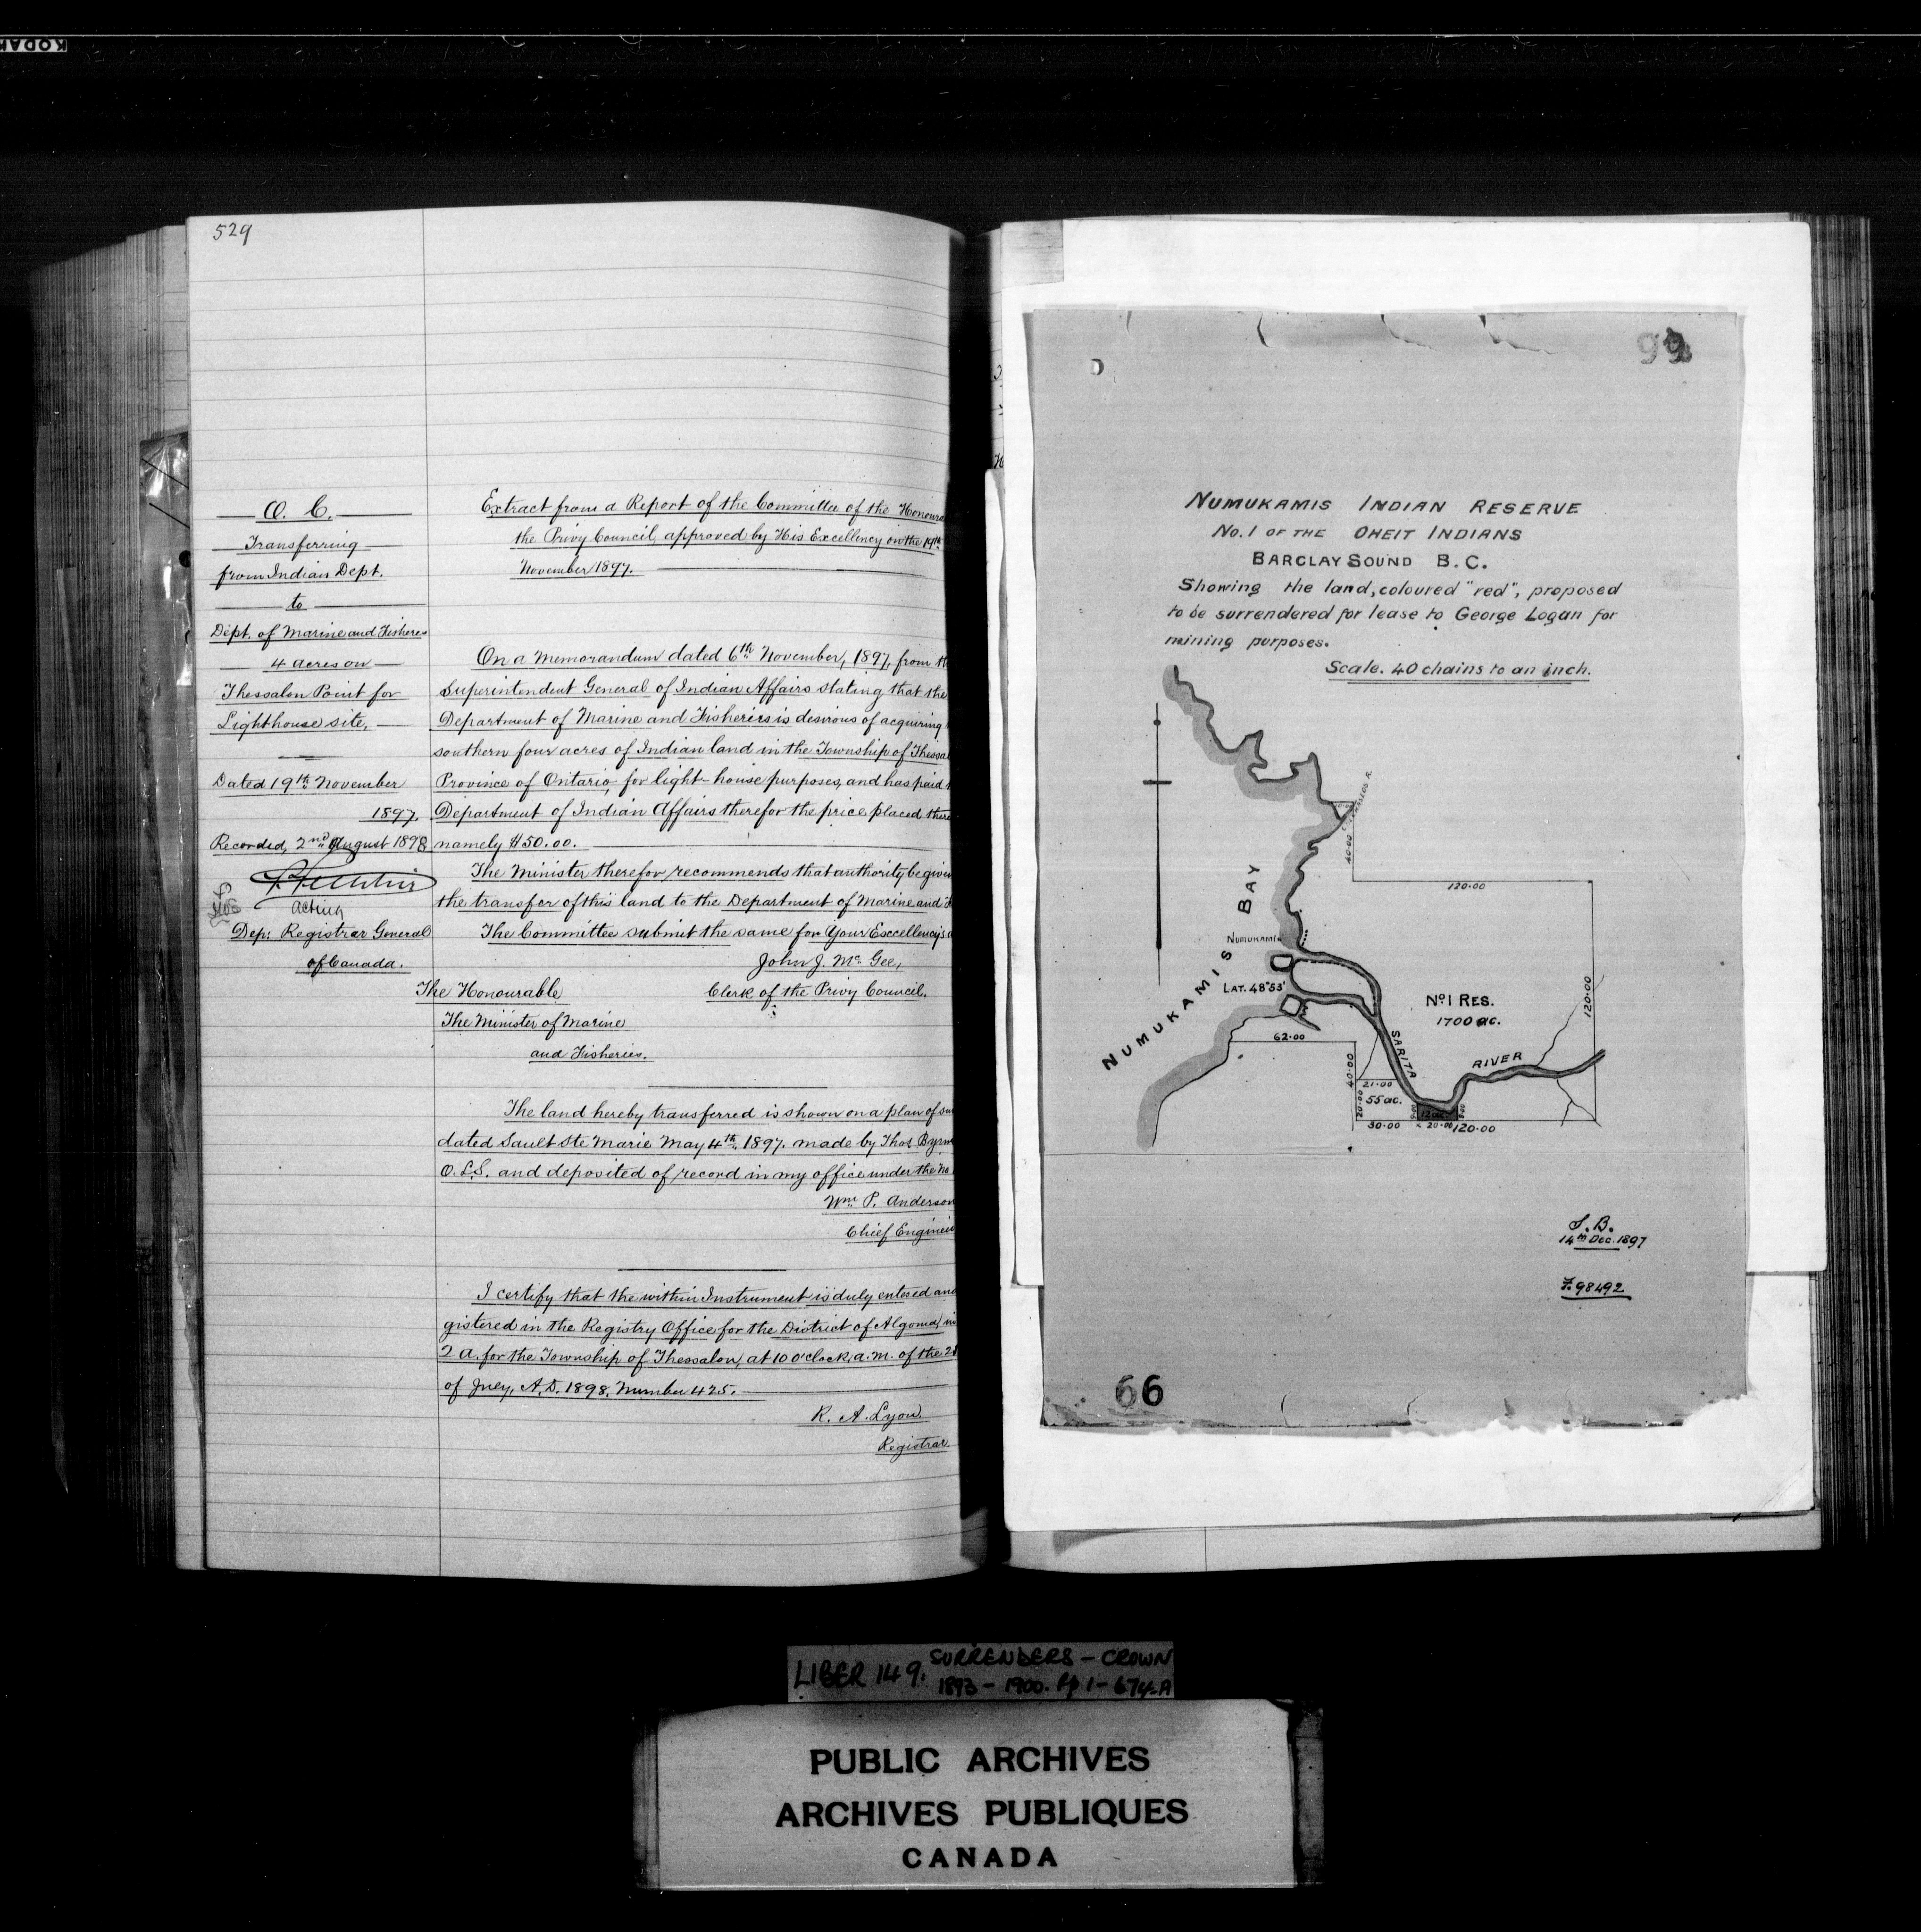 KODAK
529
O. C.
Transferring
from Indian Dept.
to
Dept. of Marine and Fisheries
4 acres on
Thessalon Point for
Lighthouse site.
Dated 19th November
1897.
Recorded, 2nd August 1898
Acting
Dep: Registrar General
of Canada.
Extract from a Report of the Committee of the Honoura
the Privy Council, approved by His Excellency on the 19th
November 1897.
On a Memorandum dated 6th November, 1897, from th
Superintendent General of Indian Affairs stating that the
Department of Marine and Fisheries is desirous of acquiring
southern four acres of Indian land in the Township of Thessa
Province of Ontario, for light-house purposes, and has paid
Department of Indian Affairs therefor the price placed there
namely $50.00.
The Minister therefor recommends that authority be given
the transfer of this land to the Department of Marine and F
The Committee submit the same for Your Excellency's a
John J. McGee,
Clerk of the Privy Council.
The Honourable
The Minister of Marine
and Fisheries.
The land hereby transferred is shown on a plan of su
dated Sault Ste Marie May 4th, 1897. made by Thos Byrne
O.L.S. and deposited of record in my office under the No
Wm P. Anderson
Chief Engineer
I certify that the within Instrument is duly entered and
gistered in the Registry Office for the District of Algoma, in
2 A. for the Township of Thessalon, at 10 o'clock, a.m. of the 2
of July, A.D. 1898. Number 425.
R. A. Lyon
Registrar.
99
NUMUKAMIS INDIAN RESERVE
No. 1 OF THE OHEIT INDIANS
BARCLAY SOUND B.C.
Showing the land, coloured "red", proposed
to be surrendered for lease to George Logan for
mining purposes.
Scale. 40 chains to an inch.
40·00
120·00
NUMUKAMIS BAY
NUMUKAMIS
LAT. 48°53'
No 1 RES.
1700 ac.
120·00
62·00
SARITA RIVER
40·00
21·00
20·00
55 ac.
12 ac.
30·00
20·00
120·00
S. B.
14th Dec. 1897
F. 98492
66
LIBER 149. SURRENDERS - CROWN
1893 - 1900. Pp 1 - 674-A
PUBLIC ARCHIVES
ARCHIVES PUBLIQUES
CANADA